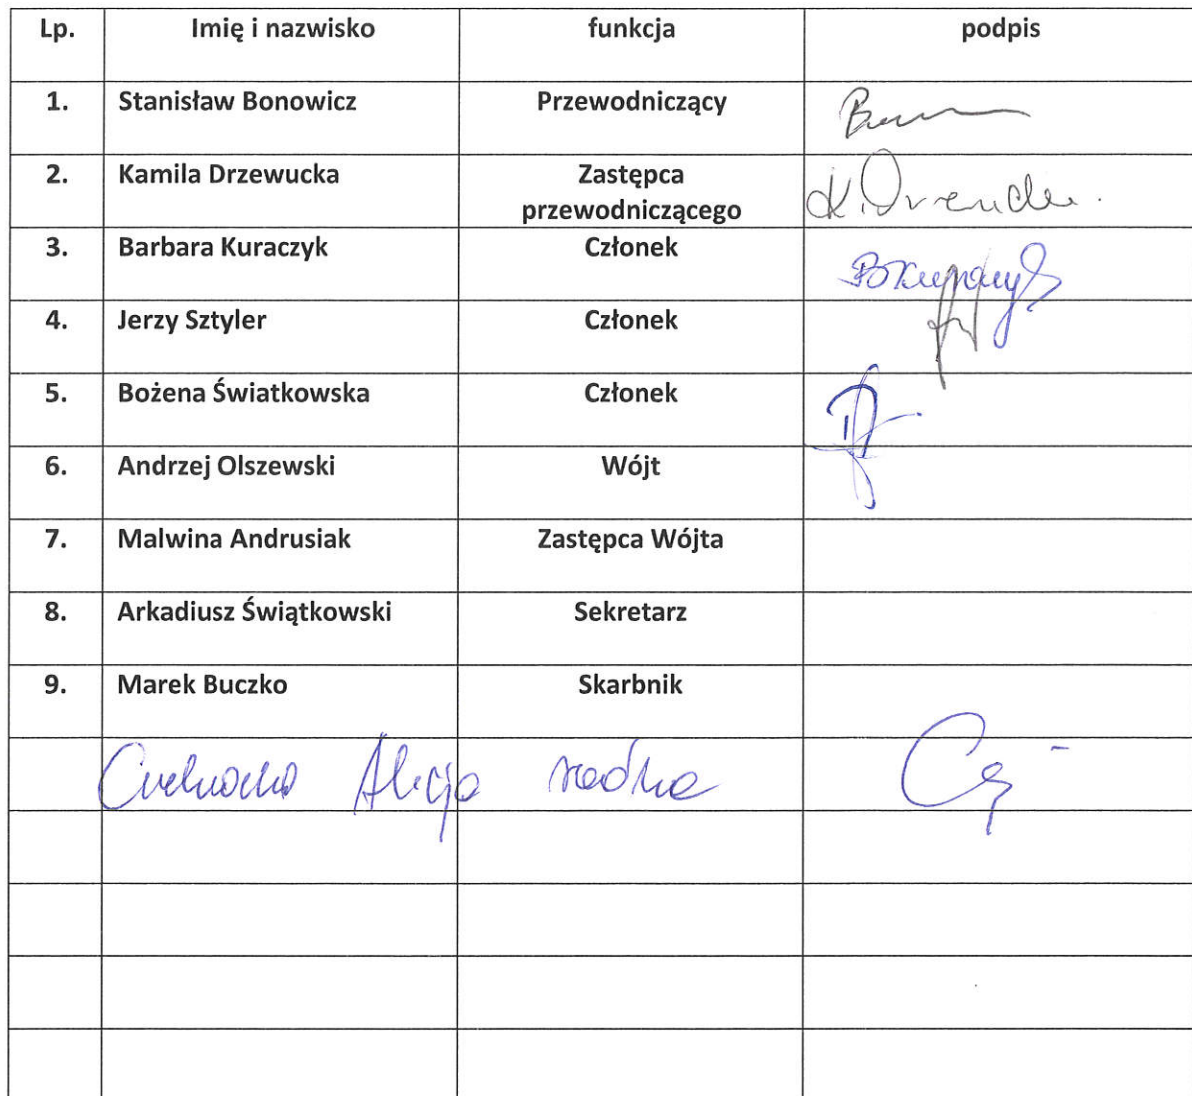 Lp. Imię i nazwisko funkcja podpis
1. Stanisław Bonowicz Przewodniczący
2. Kamila Drzewucka Zastępca
przewodniczącego
3. Barbara Kuraczyk Członek
4. Jerzy Sztyler Członek
5. Bożena Światkowska Członek
6. Andrzej Olszewski Wójt
7. Malwina Andrusiak Zastępca Wójta
8. Arkadiusz Świątkowski Sekretarz
9. Marek Buczko Skarbnik
Alicja radna